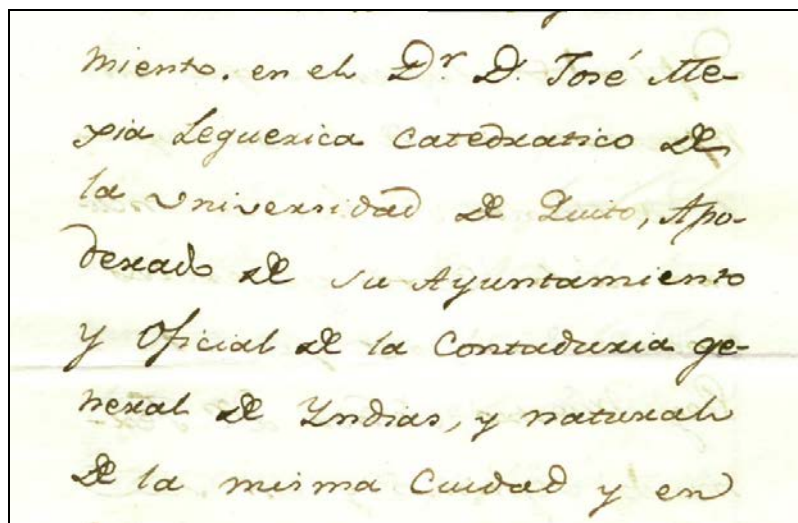 miento. en el Dr. D. José Me-
xia Lequerica Catedratico de
la Universidad de Quito, Apo-
derado de su Ayuntamiento
y Oficial de la Contaduria ge-
neral de Yndias, y natural
de la misma Ciudad y en